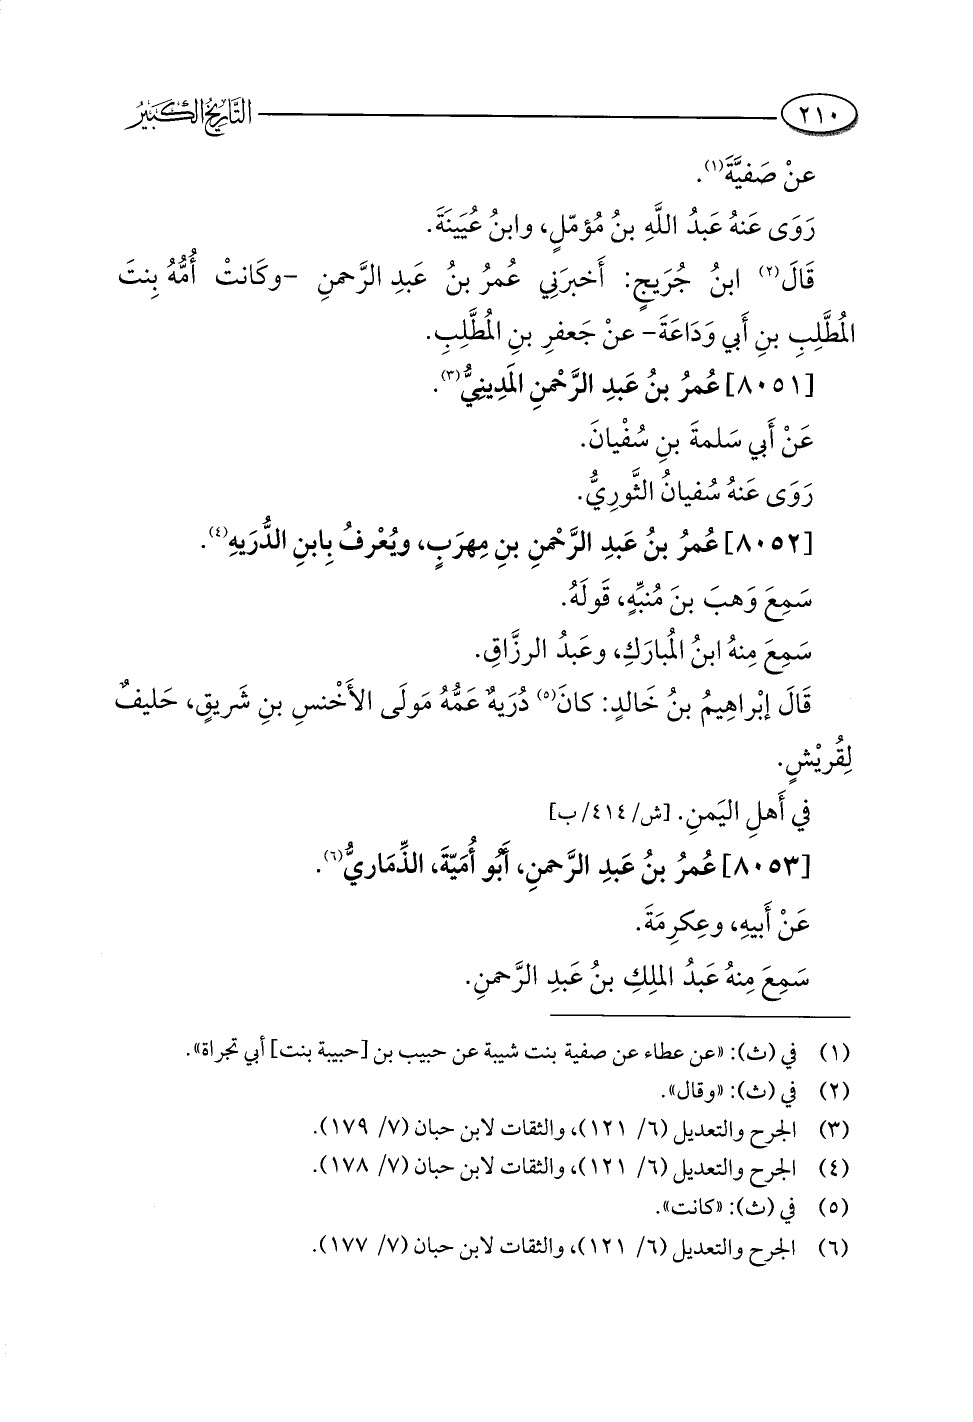 ٢١٠ التَّارِيخُ الكَبِيرُ
عنْ صَفيَّةَ(١).
رَوَى عَنهُ عَبدُ اللَّهِ بنُ مُؤمّلٍ، وابنُ عُيَينَةَ.
قَالَ(٢) ابنُ جُرَيجٍ: أَخبرَنِي عُمرُ بنُ عَبدِ الرَّحمنِ -وكَانتْ أُمُّهُ بِنتَ
المُطَّلِبِ بنِ أَبي وَدَاعَةَ- عنْ جَعفرِ بنِ المُطَّلِبِ.
[٨٠٥١] عُمرُ بنُ عَبدِ الرَّحْمنِ المَدِينِيُّ(٣).
عَنْ أَبي سَلمةَ بنِ سُفْيانَ.
رَوَى عَنهُ سُفيانُ الثَّورِيُّ.
[٨٠٥٢] عُمرُ بنُ عَبدِ الرَّحْمنِ بنِ مِهرَبٍ، ويُعْرفُ بِابنِ الدُّرَيهِ(٤).
سَمِعَ وَهبَ بنَ مُنبِّهٍ، قَولَهُ.
سَمِعَ مِنهُ ابنُ المُبارَكِ، وعَبدُ الرزَّاقِ.
قَالَ إبْراهِيمُ بنُ خَالدٍ: كانَ(٥) دُرَيهٌ عَمُّهُ مَولَى الأَخْنسِ بنِ شَريقٍ، حَليفٌ
لِقُريْشٍ.
في أَهلِ اليَمنِ. [ش/٤١٤/ب]
[٨٠٥٣] عُمرُ بنُ عَبدِ الرَّحمنِ، أَبُو أُمَيّةَ، الذِّمَاريُّ(٦).
عَنْ أَبيهِ، وعِكرِمَةَ.
سَمِعَ مِنهُ عَبدُ الملِكِ بنُ عَبدِ الرَّحمنِ.
(١) في (ث): «عن عطاء عن صفية بنت شيبة عن حبيب بن [حبيبة بنت] أبي تجراة».
(٢) في (ث): «وقال».
(٣) الجرح والتعديل (٦/ ١٢١)، والثقات لابن حبان (٧/ ١٧٩).
(٤) الجرح والتعديل (٦/ ١٢١)، والثقات لابن حبان (٧/ ١٧٨).
(٥) في (ث): «كانت».
(٦) الجرح والتعديل (٦/ ١٢١)، والثقات لابن حبان (٧/ ١٧٧).